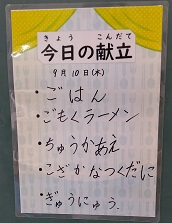 きょう こんだて
今日の献立
9月10日(木)
・ごはん
・ごもくラーメン
・ちゅうかあえ
・こざかなつくだに
・ぎゅうにゅう.